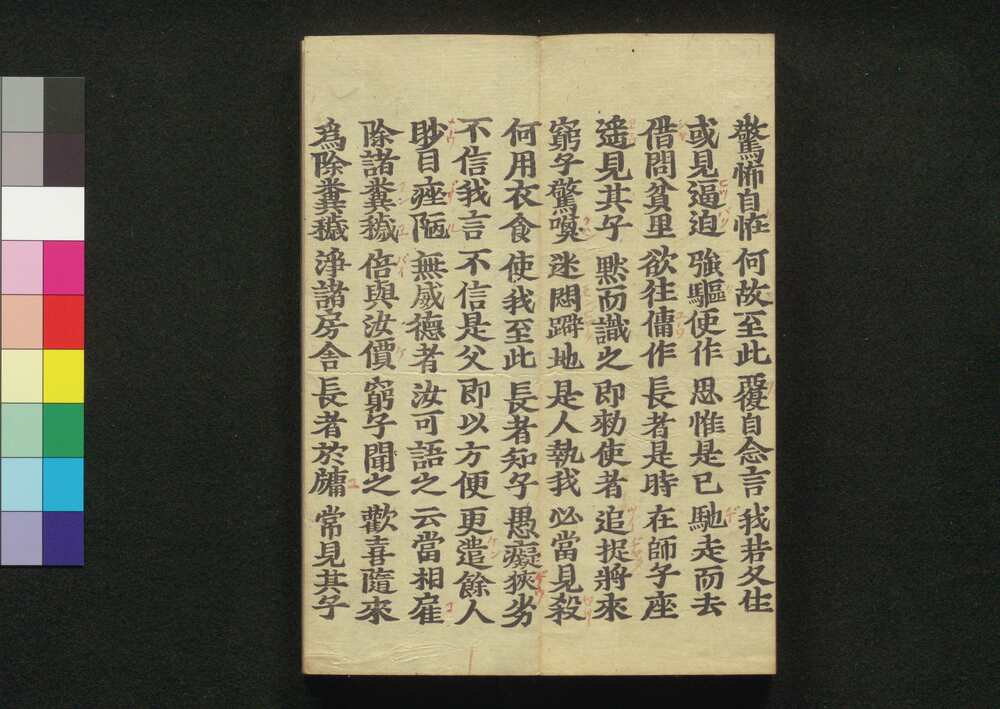 驚怖自恠何故至此覆自念言我若久住
或見逼迫強驅使作思惟是已馳走而去
借問貧里欲往傭作長者是時在師子座
遥見其子黙而識之即勑使者追捉將來
窮子驚喚迷悶躃地是人執我必當見殺
何用衣食使我至此長者知子愚癡狹劣
不信我言不信是父即以方便更遣餘人
眇目痤陋無威德者汝可語之云當相雇
除諸糞穢倍與汝價窮子聞之歡喜隨來
為除糞穢淨諸房舍長者於牗常見其子